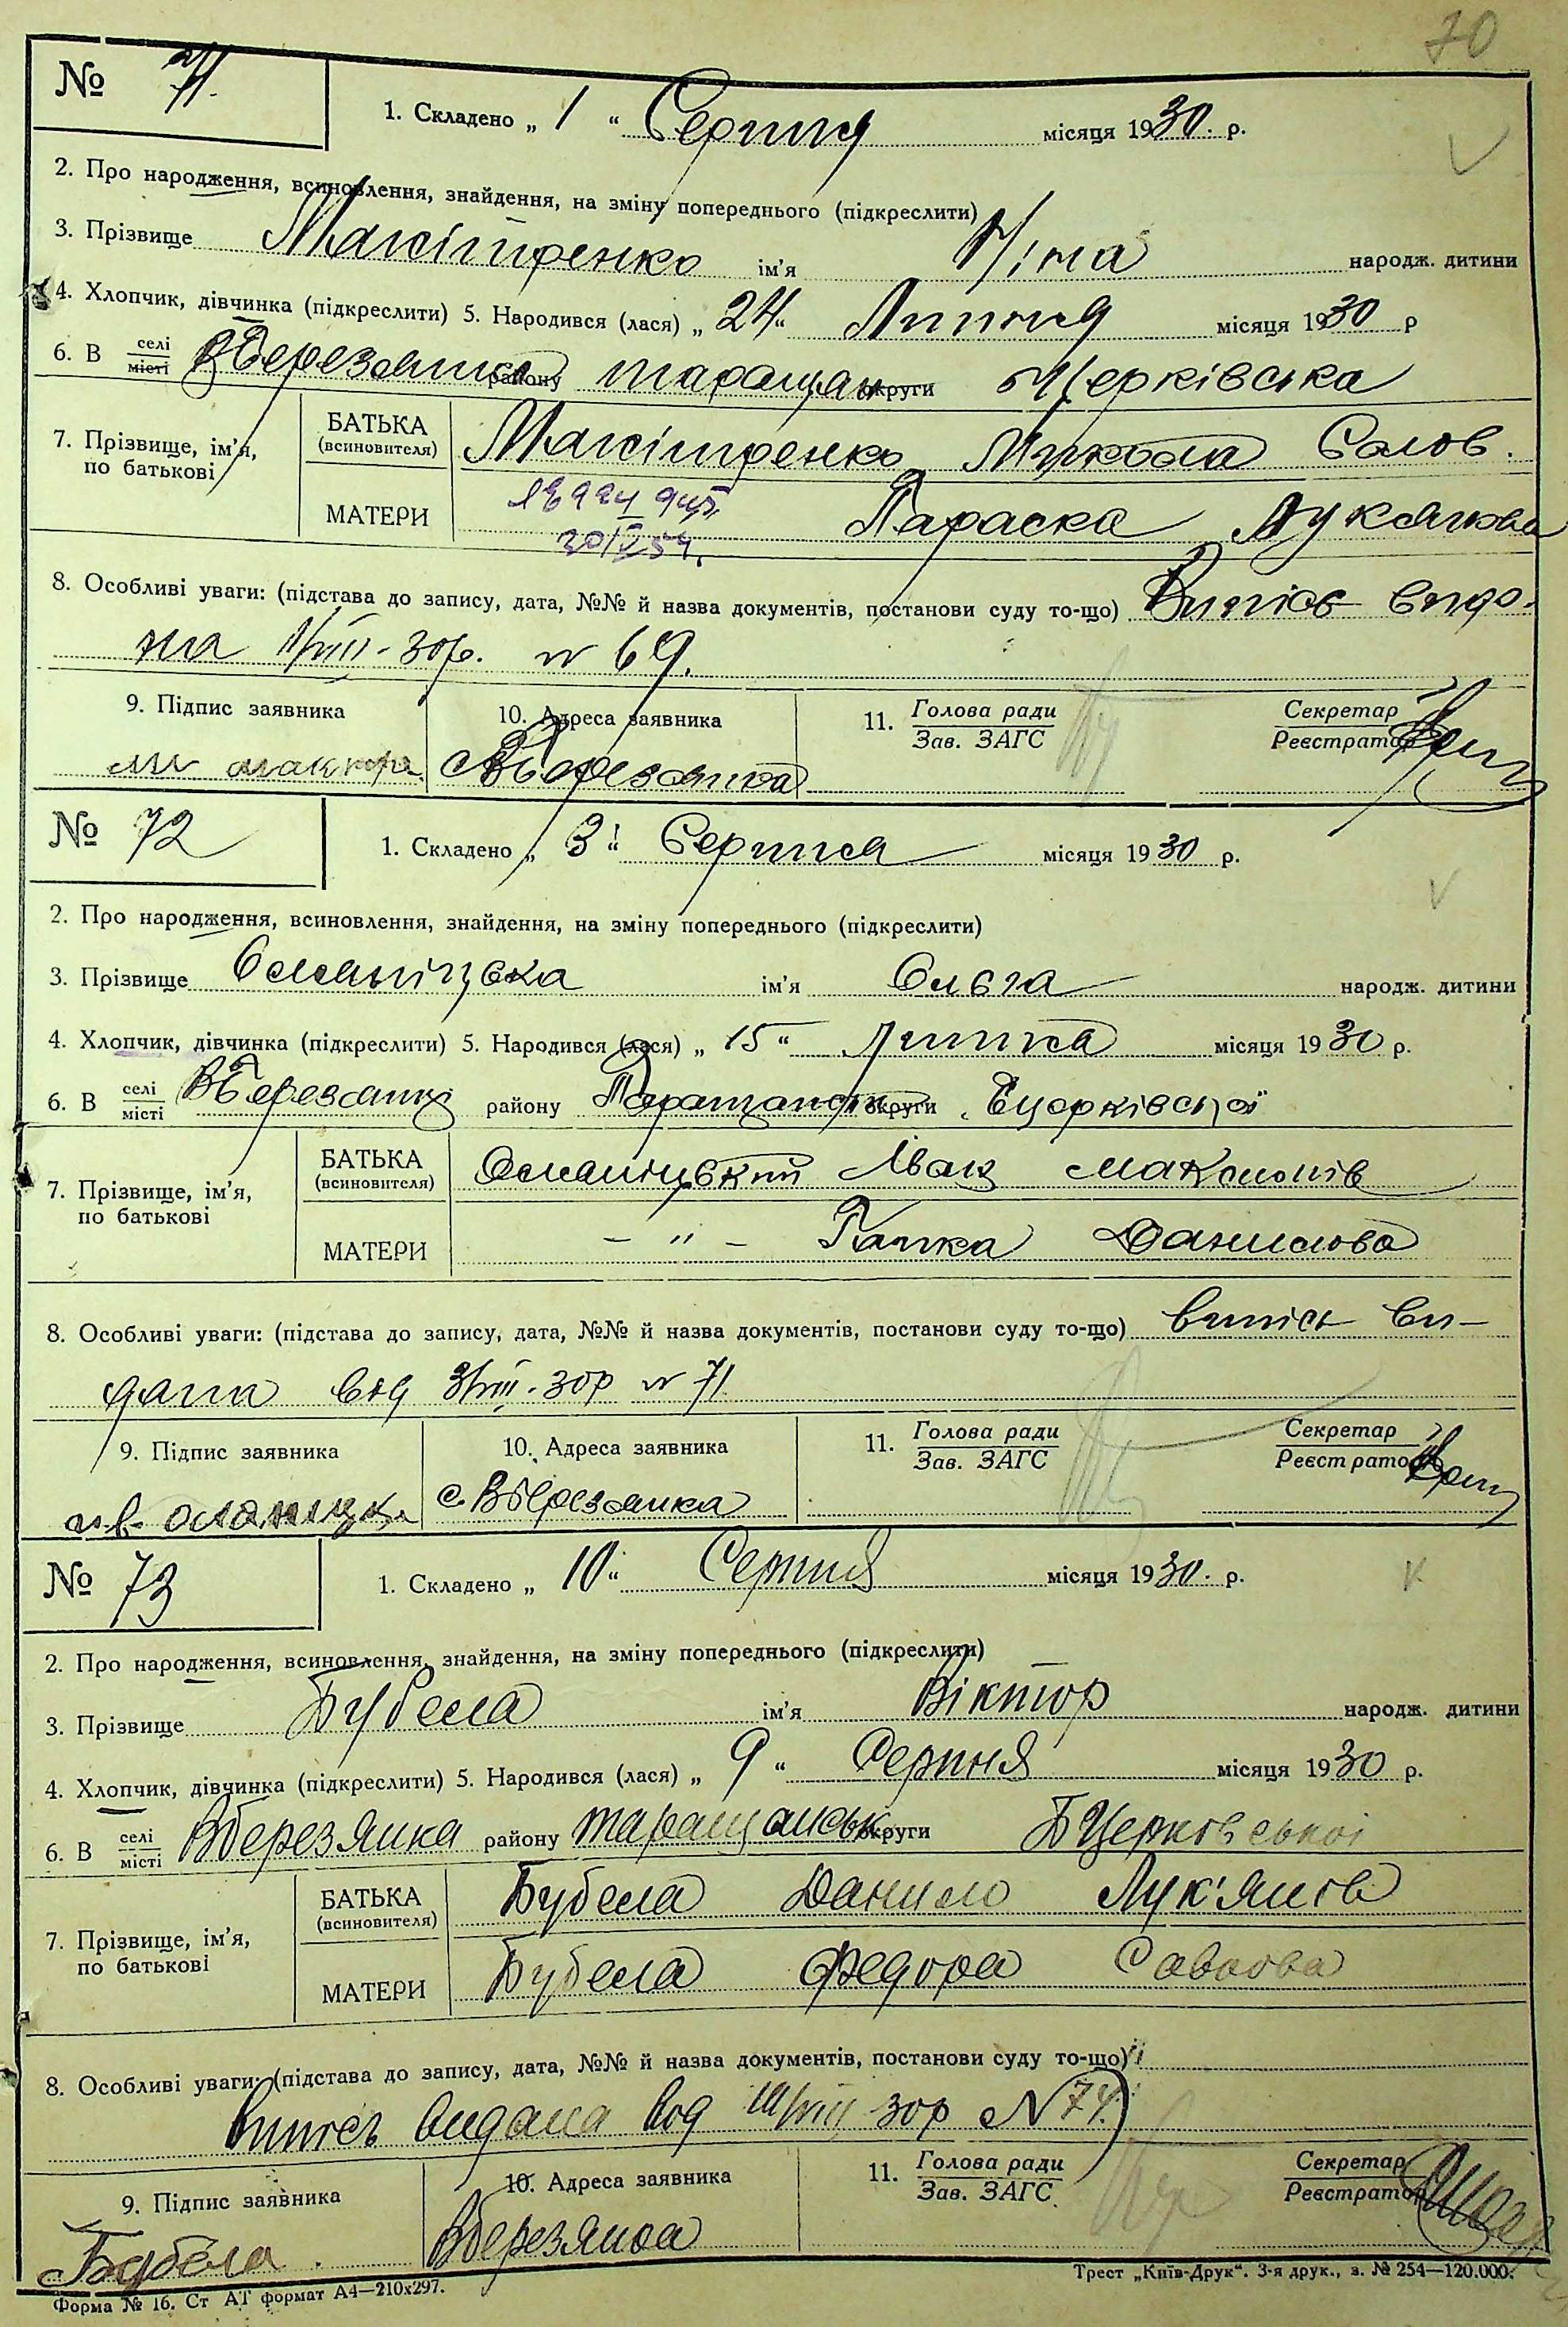 70
№ 71.
1. Складено „ 1 “ Серпня місяця 1930. р.
2. Про народження, всиновлення, знайдення, на зміну попереднього (підкреслити)
3. Прізвище ім'я Ніна народж. дитини
4. Хлопчик, дівчинка (підкреслити) 5. Народився (лася) „ 24 “ Липня місяця 1930 р
6. В селі місті району таращан округи
7. Прізвище, ім'я, по батькові
БАТЬКА (всиновителя) Микола
МАТЕРИ Параска
8. Особливі уваги: (підстава до запису, дата, №№ й назва документів, постанови суду то-що) Випісь видо-
на 1/VIII-30р. № 69.
9. Підпис заявника 10. Адреса заявника 11. Голова ради Зав. ЗАГС Секретар Реєстратор
№ 72
1. Складено „ 3 “ Серпня місяця 1930 р.
2. Про народження, всиновлення, знайдення, на зміну попереднього (підкреслити)
3. Прізвище ім'я Ольга народж. дитини
4. Хлопчик, дівчинка (підкреслити) 5. Народився (лася) „ 15 “ Липня місяця 1930 р.
6. В селі місті ВБерезанці району Таращанськ округи Бцерківської
7. Прізвище, ім'я, по батькові
БАТЬКА (всиновителя) Іван
МАТЕРИ — „ — Гапка Данилова
8. Особливі уваги: (підстава до запису, дата, №№ й назва документів, постанови суду то-що) випісь ви-
дана від 3/VIII-30р № 71
9. Підпис заявника 10. Адреса заявника 11. Голова ради Зав. ЗАГС Секретар Реєстратор
с. ВБерезянка
№ 73
1. Складено „ 10 “ Серпня місяця 1930. р.
2. Про народження, всиновлення, знайдення, на зміну попереднього (підкреслити)
3. Прізвище Бубела ім'я Віктор народж. дитини
4. Хлопчик, дівчинка (підкреслити) 5. Народився (лася) „ 9 “ Серпня місяця 1930 р.
6. В селі місті Вберезянка району таращанськ округи БЦерковської
7. Прізвище, ім'я, по батькові
БАТЬКА (всиновителя) Бубела Данило Лук'янів
МАТЕРИ Бубела Федора Савкова
8. Особливі уваги: (підстава до запису, дата, №№ й назва документів, постанови суду то-що)
Випись видана від 30р №74.
9. Підпис заявника 10. Адреса заявника 11. Голова ради Зав. ЗАГС. Секретар Реєстратор
Бубела. Вберезянка
Форма № 16. Ст АТ формат А4—210х297. Трест „Київ-Друк“. 3-я друк., з. № 254—120.000.